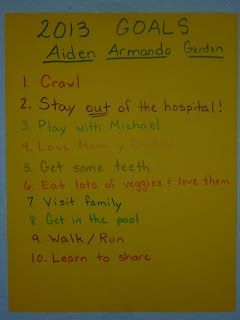 2013 GOALS
Aiden Armando Gordon
1. Crawl
2. Stay out of the hospital!
3. Play with Michael
4. Love Mommy
5. Get some teeth
6. Eat lots of veggies & love them
7. Visit family
8. Get in the pool
9. Walk/Run
10. Learn to share